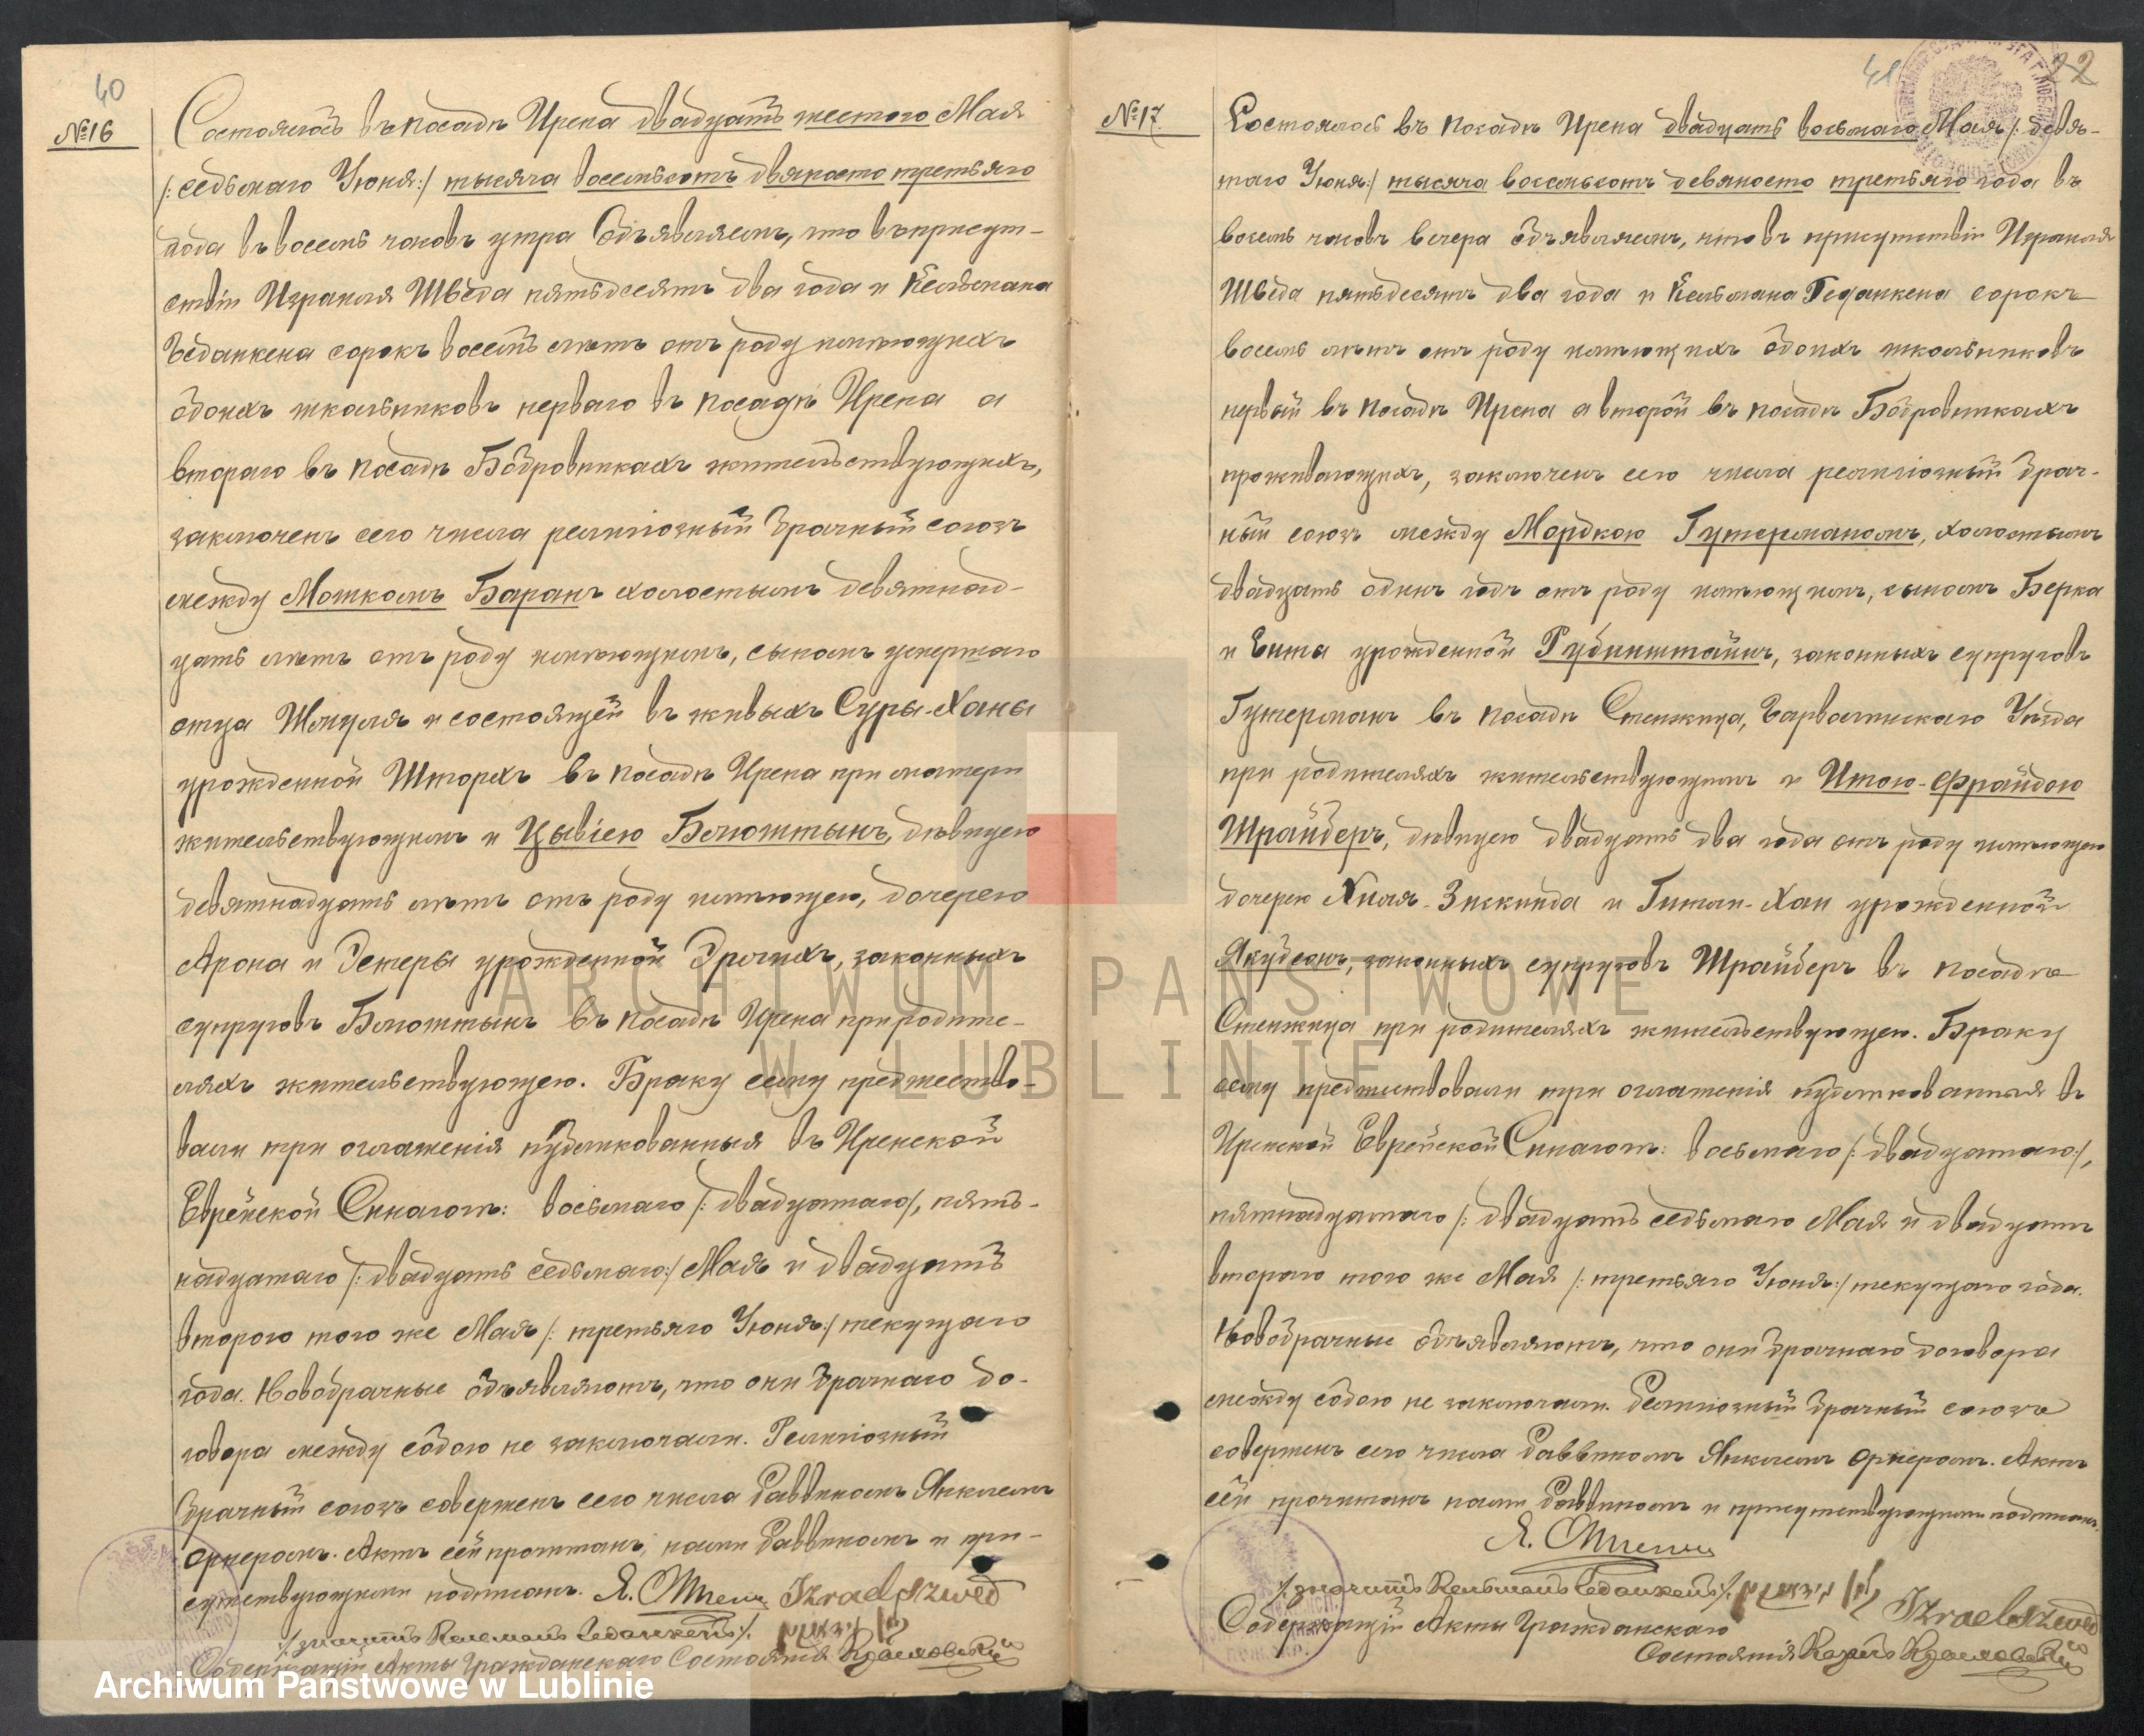 40
№16
Состоялось въ посадѣ Ирена двадцать шестого Мая
/: седьмаго Іюня:/ тысяча восемьсотъ девяносто третьяго
года въ восемь часовъ утра Объявляемъ, что въ присут-
ствіи Израиля Шведа пятьдесятъ два года и Кельмана
Геданкена сорокъ восемь лѣтъ отъ роду имѣющихъ
обоихъ школьниковъ перваго въ посадѣ Ирена а
втораго въ посадѣ Бобровникахъ жительствующихъ,
заключенъ сего числа религіозный брачный союзъ
между Мошкомъ Баранъ холостымъ девятнад-
цать лѣтъ отъ роду имѣющимъ, сыномъ умершаго
отца Шмуля и состоящей въ живыхъ Суры-Ханы
урожденной Шторхъ въ посадѣ Ирена при матери
жительствующимъ и Цывіею Блюштынъ, дѣвицею
девятнадцать лѣтъ отъ роду имѣющею, дочерею
Арона и Эстеры урожденной, законныхъ
супруговъ Блюштынъ въ посадѣ Ирена при родите-
ляхъ жительствующею. Браку сему предшество-
вали три оглашенія публикованныя въ Иренской
Еврейской Синагогѣ: восьмаго /: двадцатаго/, пят-
надцатаго /: двадцать седьмаго:/ Мая и двадцать
второго того же Мая /: третьяго Іюня:/ текущаго
года. Новобрачные объявляютъ, что они брачнаго до-
говора между собою не заключали. Религіозный
брачный союзъ совершенъ сего числа Раввиномъ Янкелемъ
Эрнеромъ. Актъ сей прочитанъ, нами Раввиномъ и при-
сутствующими подписанъ. Izrael Szwed
:/ значитъ Кельманъ Геданкенъ:/.
Содержащій Акты Гражданскаго Состоянія
41
22
№17
Состоялось въ посадѣ Ирена двадцать восьмаго Мая /: девя-
таго Іюня:/ тысяча восемьсотъ девяносто третьяго года въ
восемь часовъ вечера объявляемъ, что въ присутствіи Израиля
Шведа пятьдесятъ два года и Кельмана Геданкена сорокъ
восемь лѣтъ отъ роду имѣющихъ обоихъ школьниковъ
первый въ посадѣ Ирена а второй въ посадѣ Бобровникахъ
проживающихъ, заключенъ сего числа религіозный брач-
ный союзъ между Мордкою Гутерманомъ, холостымъ
двадцать одинъ годъ отъ роду имѣющимъ, сыномъ Берка
и Енты урожденной Рубинштайнъ, законныхъ супруговъ
Гутерманъ въ посадѣ Стенжица, Гарволинскаго Уѣзда
при родителяхъ жительствующимъ и Итою-Фрайдою
Шрайберъ, дѣвицею двадцать два года отъ роду имѣющею
дочерею Хиля-Зискинда и Гитли-Хаи урожденной
Якубсонъ, законныхъ супруговъ Шрайберъ въ посадѣ
Стенжица при родителяхъ жительствующею. Браку
сему предшествовали три оглашенія публикованныя въ
Иренской Еврейской Синагогѣ: восьмаго /: двадцатаго:/,
пятнадцатаго /: двадцать седьмаго Мая и двадцать
второго того же Мая /: третьяго Іюня:/ текущаго года.
Новобрачные объявляютъ, что они брачнаго договора
между собою не заключали. Религіозный брачный союзъ
совершенъ сего числа Раввиномъ Янкелемъ Эрнеромъ. Актъ
сей прочитанъ нами Раввиномъ и присутствующими подписанъ.
:/ значитъ Кельманъ Геданкенъ:/. Izrael Szwed
Содержащій Акты Гражданскаго
Состоянія
ARCHIWUM PAŃSTWOWE
W LUBLINIE
Archiwum Państwowe w Lublinie